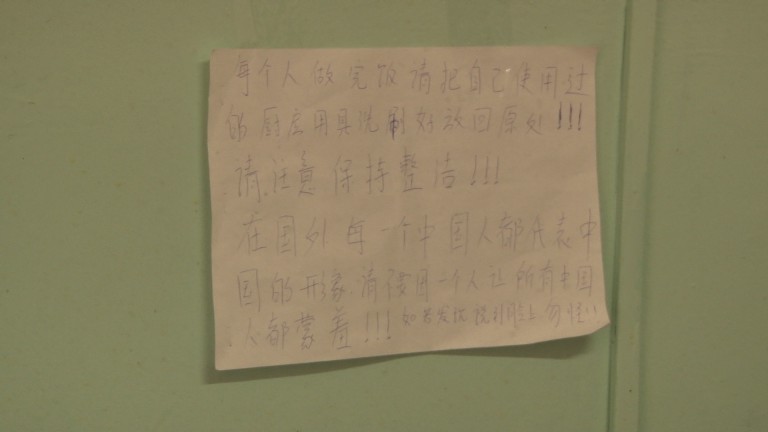 每个人做完饭请把自己使用过
的厨房用具洗刷好放回原处!!!
请注意保持整洁!!!
在国外每一个中国人都代表中
国的形象.请 一个人让所有中国
人都蒙羞!!! 如若发现